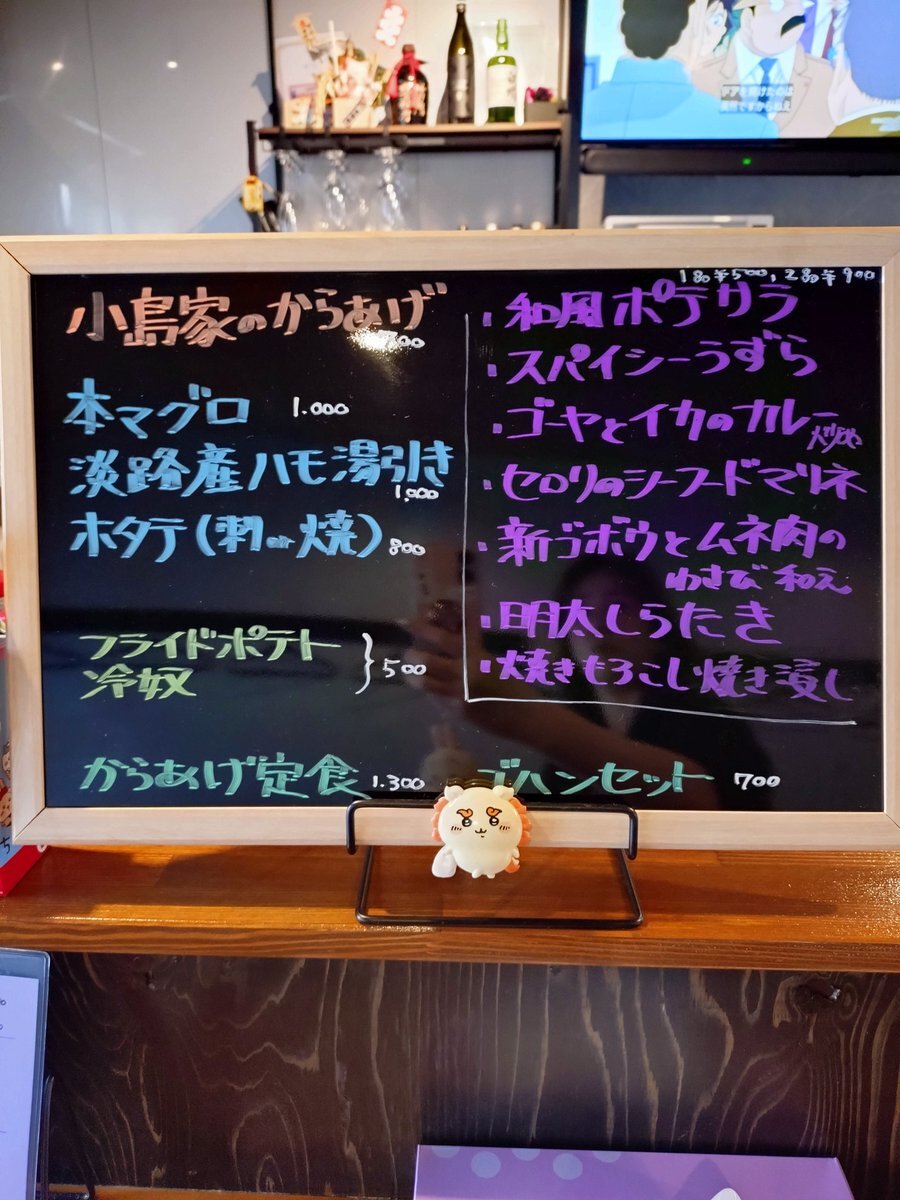 小島家のからあげ
本マグロ 1.000
淡路産ハモ湯引き
1.000
ホタテ(刺or焼) 800
フライドポテト
冷奴
}500
からあげ定食 1.300
1品¥500, 2品¥900
・和風ポテサラ
・スパイシーうずら
・ゴーヤとイカのカレー
・セロリのシーフードマリネ
・新ゴボウとムネ肉の
わさび和え
・明太しらたき
・焼きもろこし焼き漬し
ゴハンセット 700
ドアを開けたのは